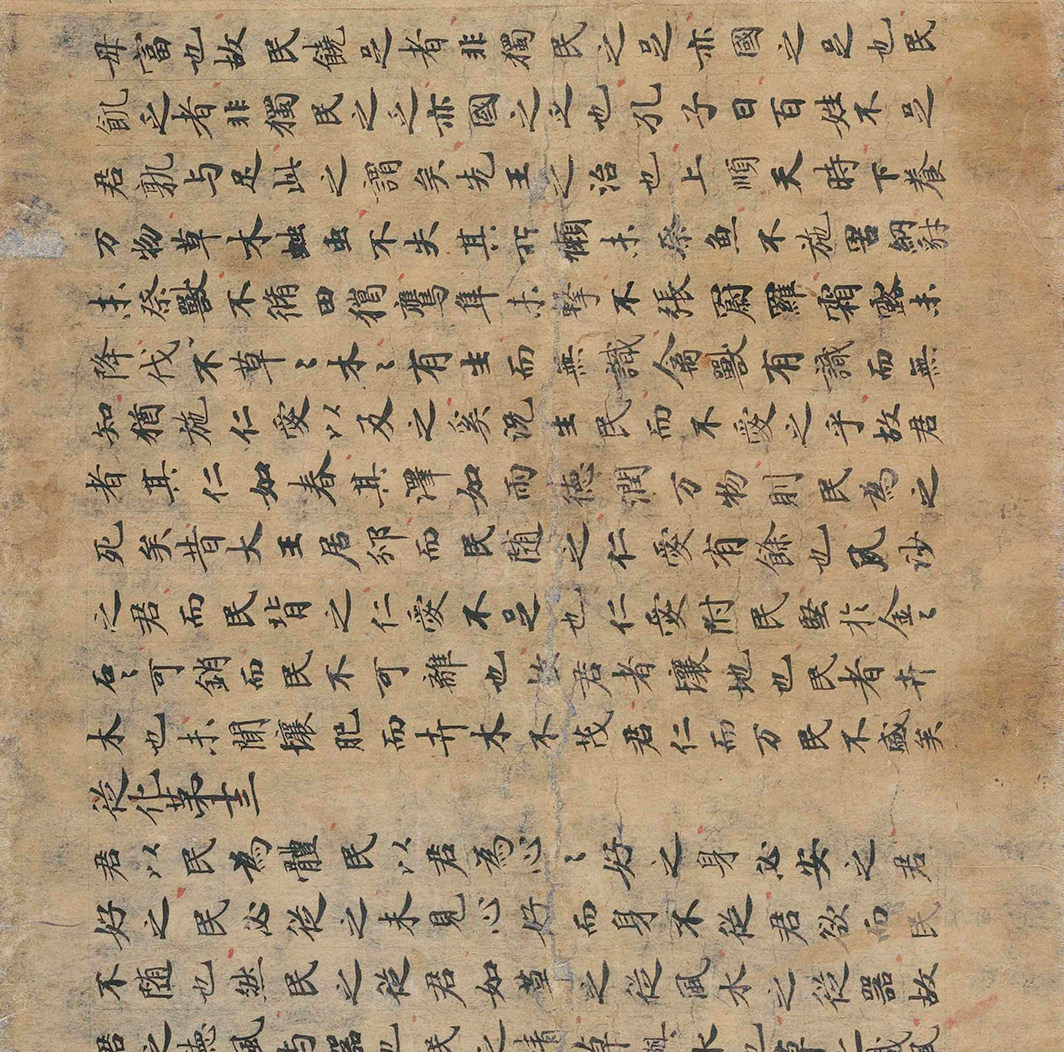 毋富也故民饒足者非獨民之足亦國之足也民
飢乏者非獨民之乏亦國之乏也孔子曰百姓不足
君孰与足此之謂矣先王之治也上順天時下養
万物草木䖝虫不失其所獺未祭魚不施罟網豺
未祭獸不脩田獦鷹隼未擊不張罻羅霜露未
降伐不草〻木〻有生而無識禽獸有識而無
知猶施仁愛以及之矣况生民而不愛之乎故君
者其仁如春其澤如雨德潤万物則民為之
死矣昔大王居邠而民随之仁愛有餘也夙沙
之君而民背之仁愛不足也仁愛附民堅於金〻
石〻可銷而民不可離也故君者壤地也民者卉
木也未聞壤肥而卉木不茂君仁而万民不盛矣
從化第十三
君以民為體民以君為心〻好之身必安之君
好之民必從之未見心好而身不從君欲而民
不随也然民之從君如草之從風水之從器故
君之德風与器也民之情草與水也草之風